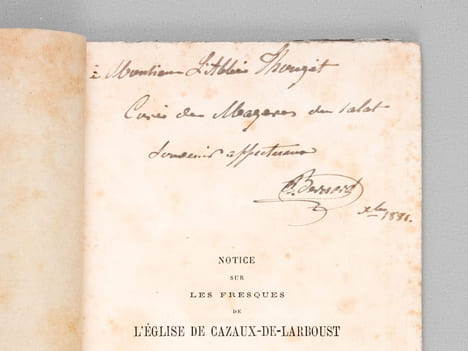 à Monsieur L'Abbé Thouget
Curé de Mazeres du Salat
Souvenir affectueux
B. Bernard
Xbre 1881.
NOTICE
SUR
LES FRESQUES
DE
L'ÉGLISE DE CAZAUX-DE-LARBOUST